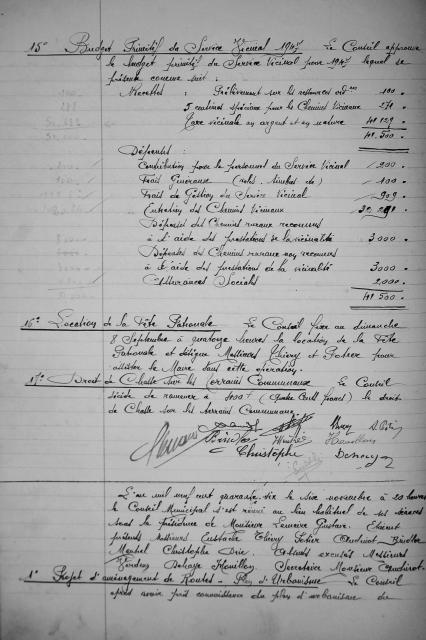 15° Budget Primitif du Service Vicinal 1947 Le Conseil approuve
le budget primitif du Service Vicinal pour 1947 lequel se
présente comme suit :
Recettes : Prélèvement sur les ressources ord res 100
5 centimes spéciaux pour les Chemins Vicinaux 271
Taxe vicinale en argent et en nature 41 129
41 500
Dépenses :
Contribution pour le personnel du Service Vicinal 200
Frais Généraux ( timbres etc ) 100
Frais de Gestion du Service Vicinal 909
Entretien des Chemins Vicinaux 32 291
Dépenses des Chemins ruraux reconnus
à l'aide des prestations de la vicinalité 3000
Dépenses des Chemins ruraux non reconnus
à l'aide des prestations de la vicinalité 3000
Assurances Sociales 2,000
41 500
16° Location de la Fête Nationale Le Conseil fixe au dimanche
8 Septembre à quatorze heures la location de la Fête
Nationale et délègue Messieurs Thiery et Potier pour
assister le Maire dans cette opération.
17° Droit de Chasse sur les Terrains Communaux Le Conseil
décide de ramener à 400 f (Quatre Cents francs) le droit
de Chasse sur les terrains Communaux.
Christophe
L'an mil neuf cent quarante six le six novembre à 20 heures
le Conseil Municipal s'est réuni au lieu habituel de ses séances
sous la présidence de Monsieur Lemaire Gustave. Etaient
présents Messieurs Eustache Thiery Potier
Christophe Absents excusés Messieurs
Secrétaire Monsieur
1° Projet d'aménagement de Routes - Plan d'Urbanisme Le Conseil
après avoir pris connaissance du plan d'urbanisme de